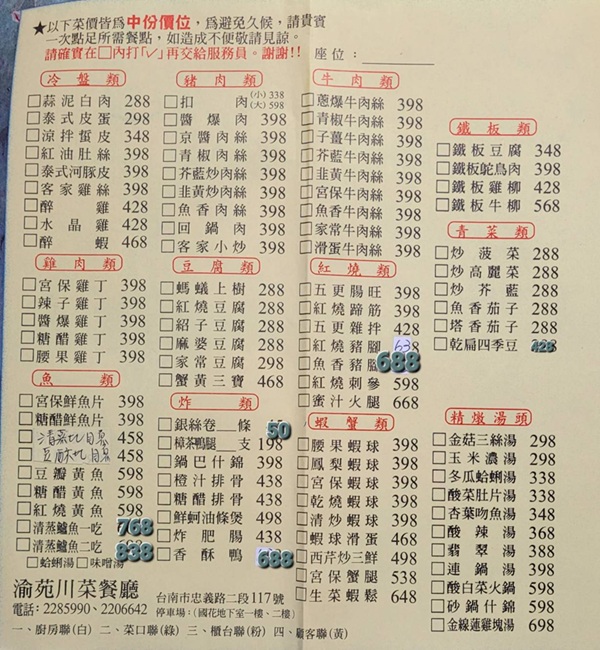 ★以下菜價皆爲中份價位，爲避免久候，請貴賓
一次點足所需餐點，如造成不便敬請見諒。
請確實在□內打「✓」再交給服務員。謝謝!! 座位：
冷盤類
□蒜泥白肉 288
□泰式皮蛋 298
□涼拌蜇皮 348
□紅油肚絲 398
□泰式河豚皮 398
□客家雞絲 398
□醉雞 428
□水晶雞 428
□醉蝦 468
豬肉類
□扣肉 (小)338 (大)598
□醬爆肉 398
□京醬肉絲 398
□青椒肉絲 398
□芥藍炒肉絲 398
□韭黃炒肉絲 398
□魚香肉絲 398
□回鍋肉 398
□客家小炒 398
牛肉類
□蔥爆牛肉絲 398
□青椒牛肉絲 398
□子薑牛肉絲 398
□芥藍牛肉絲 398
□韭黃牛肉絲 398
□宮保牛肉絲 398
□魚香牛肉絲 398
□家常牛肉絲 398
□滑蛋牛肉絲 398
鐵板類
□鐵板豆腐 348
□鐵板鴕鳥肉 398
□鐵板雞柳 428
□鐵板牛柳 568
青菜類
□炒菠菜 288
□炒高麗菜 288
□炒芥藍 288
□魚香茄子 288
□塔香茄子 288
□乾扁四季豆
雞肉類
□宮保雞丁 398
□辣子雞丁 398
□醬爆雞丁 398
□糖醋雞丁 398
□腰果雞丁 398
豆腐類
□螞蟻上樹 288
□紅燒豆腐 288
□紹子豆腐 288
□麻婆豆腐 288
□家常豆腐 298
□蟹黃三寶 468
紅燒類
□五更腸旺 398
□紅燒蹄筋 398
□五更雜拌 428
□紅燒豬腳 638
□魚香豬腳 688
□紅燒刺參 598
□蜜汁火腿 668
魚類
□宮保鮮魚片 398
□糖醋鮮魚片 398
□清蒸比目魚 458
□豆酥比目魚 458
□豆瓣黃魚 598
□糖醋黃魚 598
□紅燒黃魚 598
□清蒸鱸魚一吃 768
□清蒸鱸魚二吃 838
□蛤蜊湯 □味噌湯
炸類
□銀絲卷＿條 50
□樟茶鴨腿＿支 198
□鍋巴什錦 398
□橙汁排骨 438
□糖醋排骨 438
□鮮蚵油條煲 498
□炸肥腸 438
□香酥鴨 688
蝦蟹類
□腰果蝦球 398
□鳳梨蝦球 398
□宮保蝦球 398
□乾燒蝦球 398
□清炒蝦球 398
□蝦球滑蛋 468
□西芹炒三鮮 498
□宮保蟹腿 538
□生菜蝦鬆 648
精燉湯頭
□金菇三絲湯 298
□玉米濃湯 298
□冬瓜蛤蜊湯 338
□酸菜肚片湯 338
□杏葉吻魚湯 348
□酸辣湯 368
□翡翠湯 388
□連鍋湯 398
□酸白菜火鍋 598
□砂鍋什錦 598
□金線蓮雞塊湯 698
渝苑川菜餐廳
電話：2285990、2206642
台南市忠義路二段117號
停車場：（國花地下室一樓、二樓）
一、廚房聯(白) 二、菜口聯(綠) 三、櫃台聯(粉) 四、顧客聯(黃)